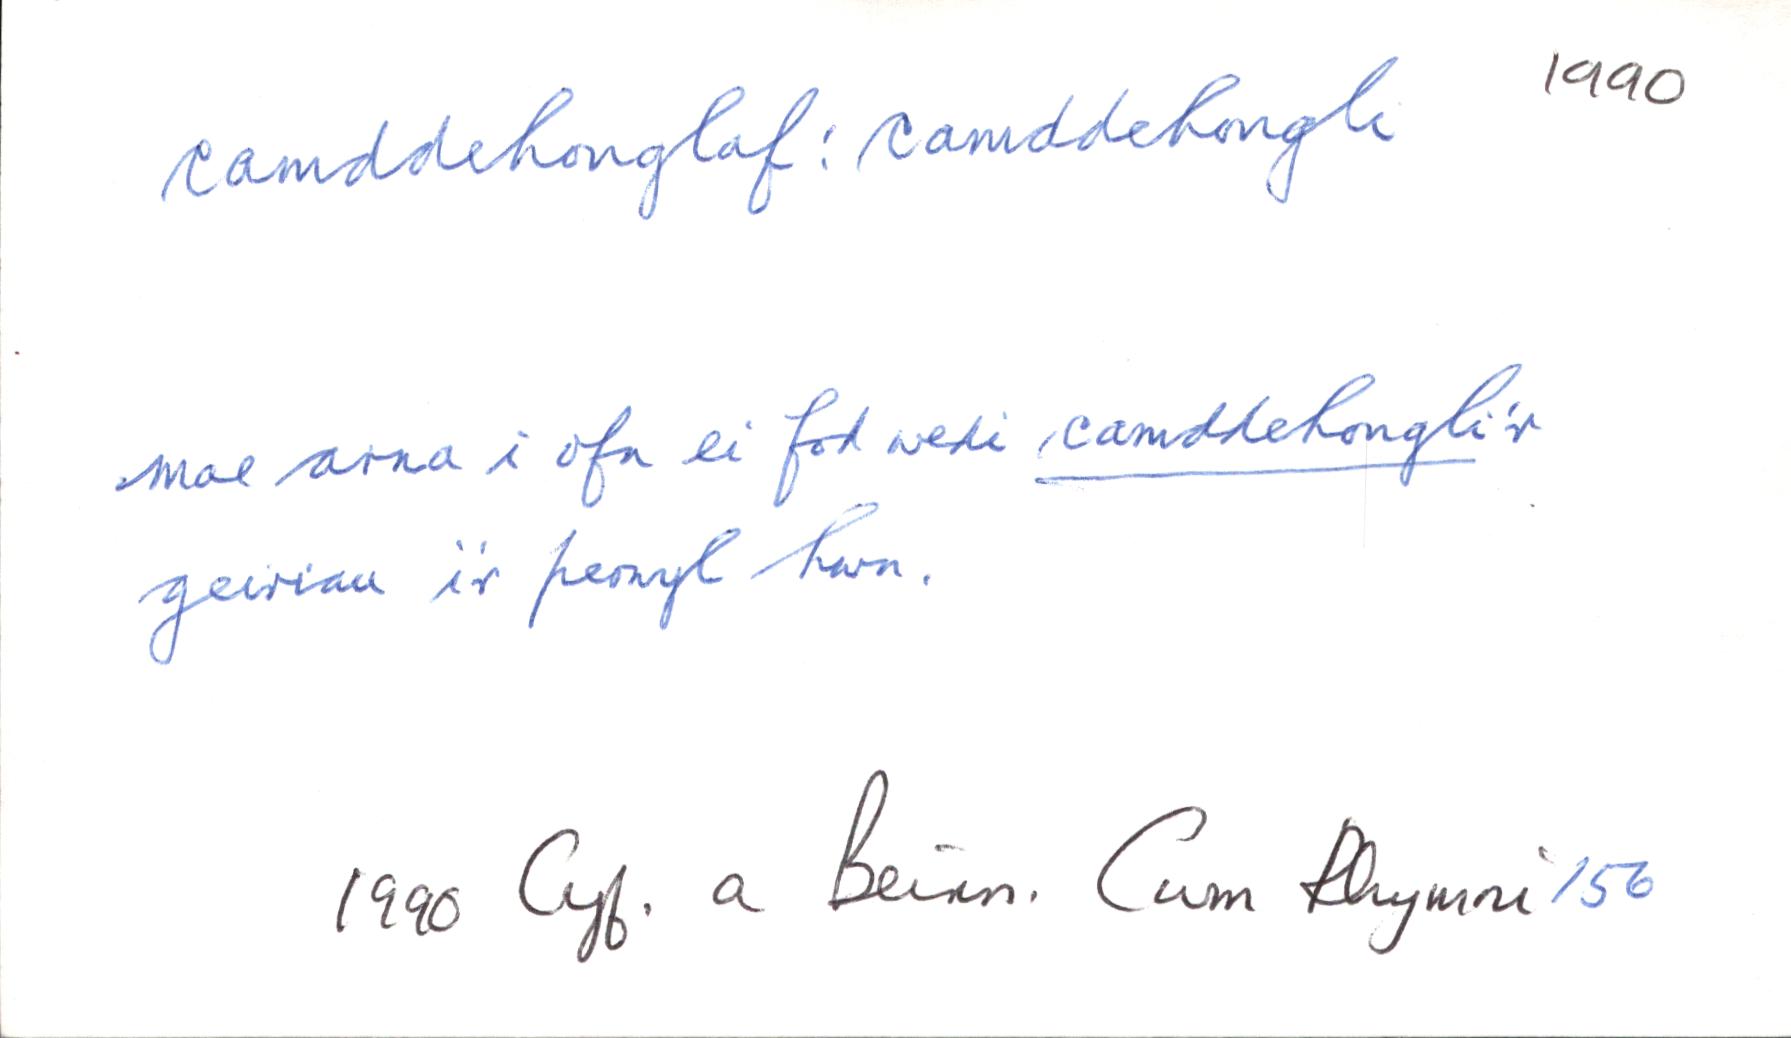 1990
camddehonglaf: camddehongli
mae arna i ofn ei fod wedi camddehongli'r
geiriau i'r perwyl hwn.
1990 Cyf. a Beirn. Cwm Rhymni 156